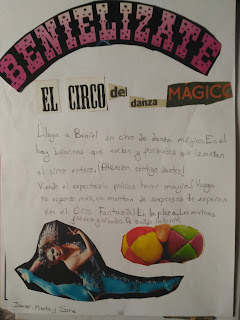 BENIELIZATE
EL CIRCO del danza MAGICO
Llega a Beniel un circo de danza mágica. En el
hay bailarinas que vuelan y forzudos que levantan
el circo entero. ¡Atención, contigo dentro!
Viendo el espectáculo podrás hacer magia! Vengan
no esperes más, un montón de sorpresas te esperan
en el Circo Fantasía! En la plaza
Javier, Marta y Sara